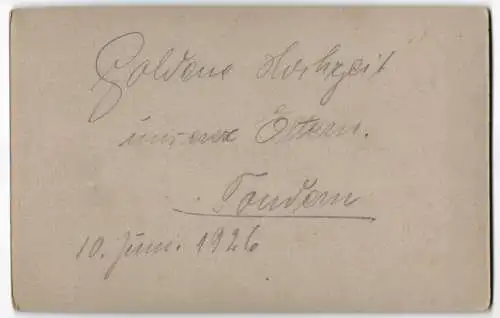 Goldene Hochzeit
unserer Eltern.
Tondern
10. Juni. 1926